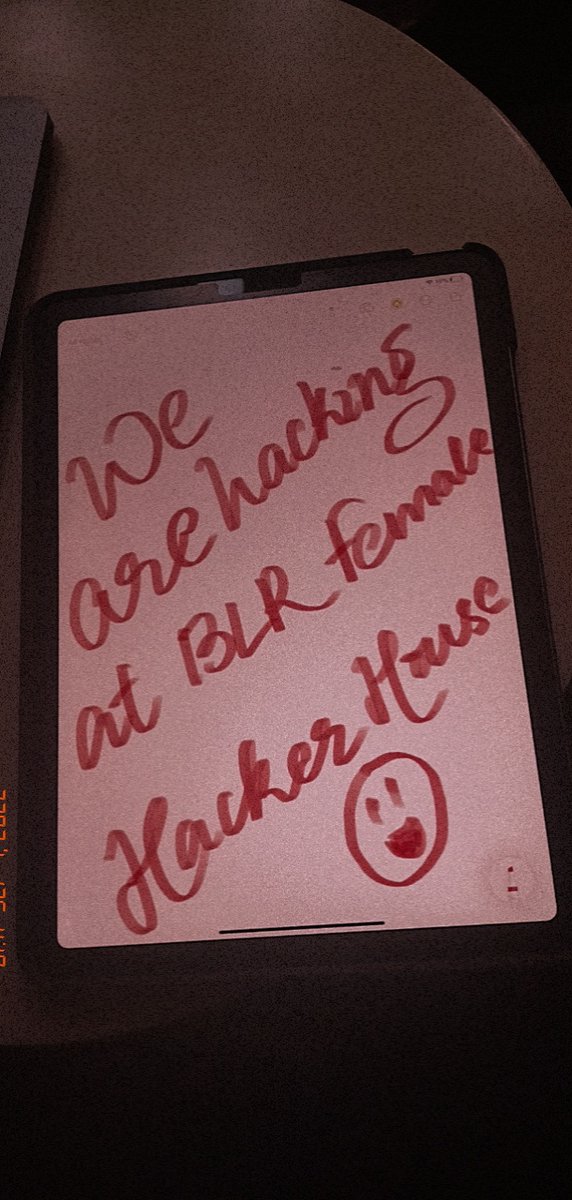 We
are hacking
at BLR female
Hacker House